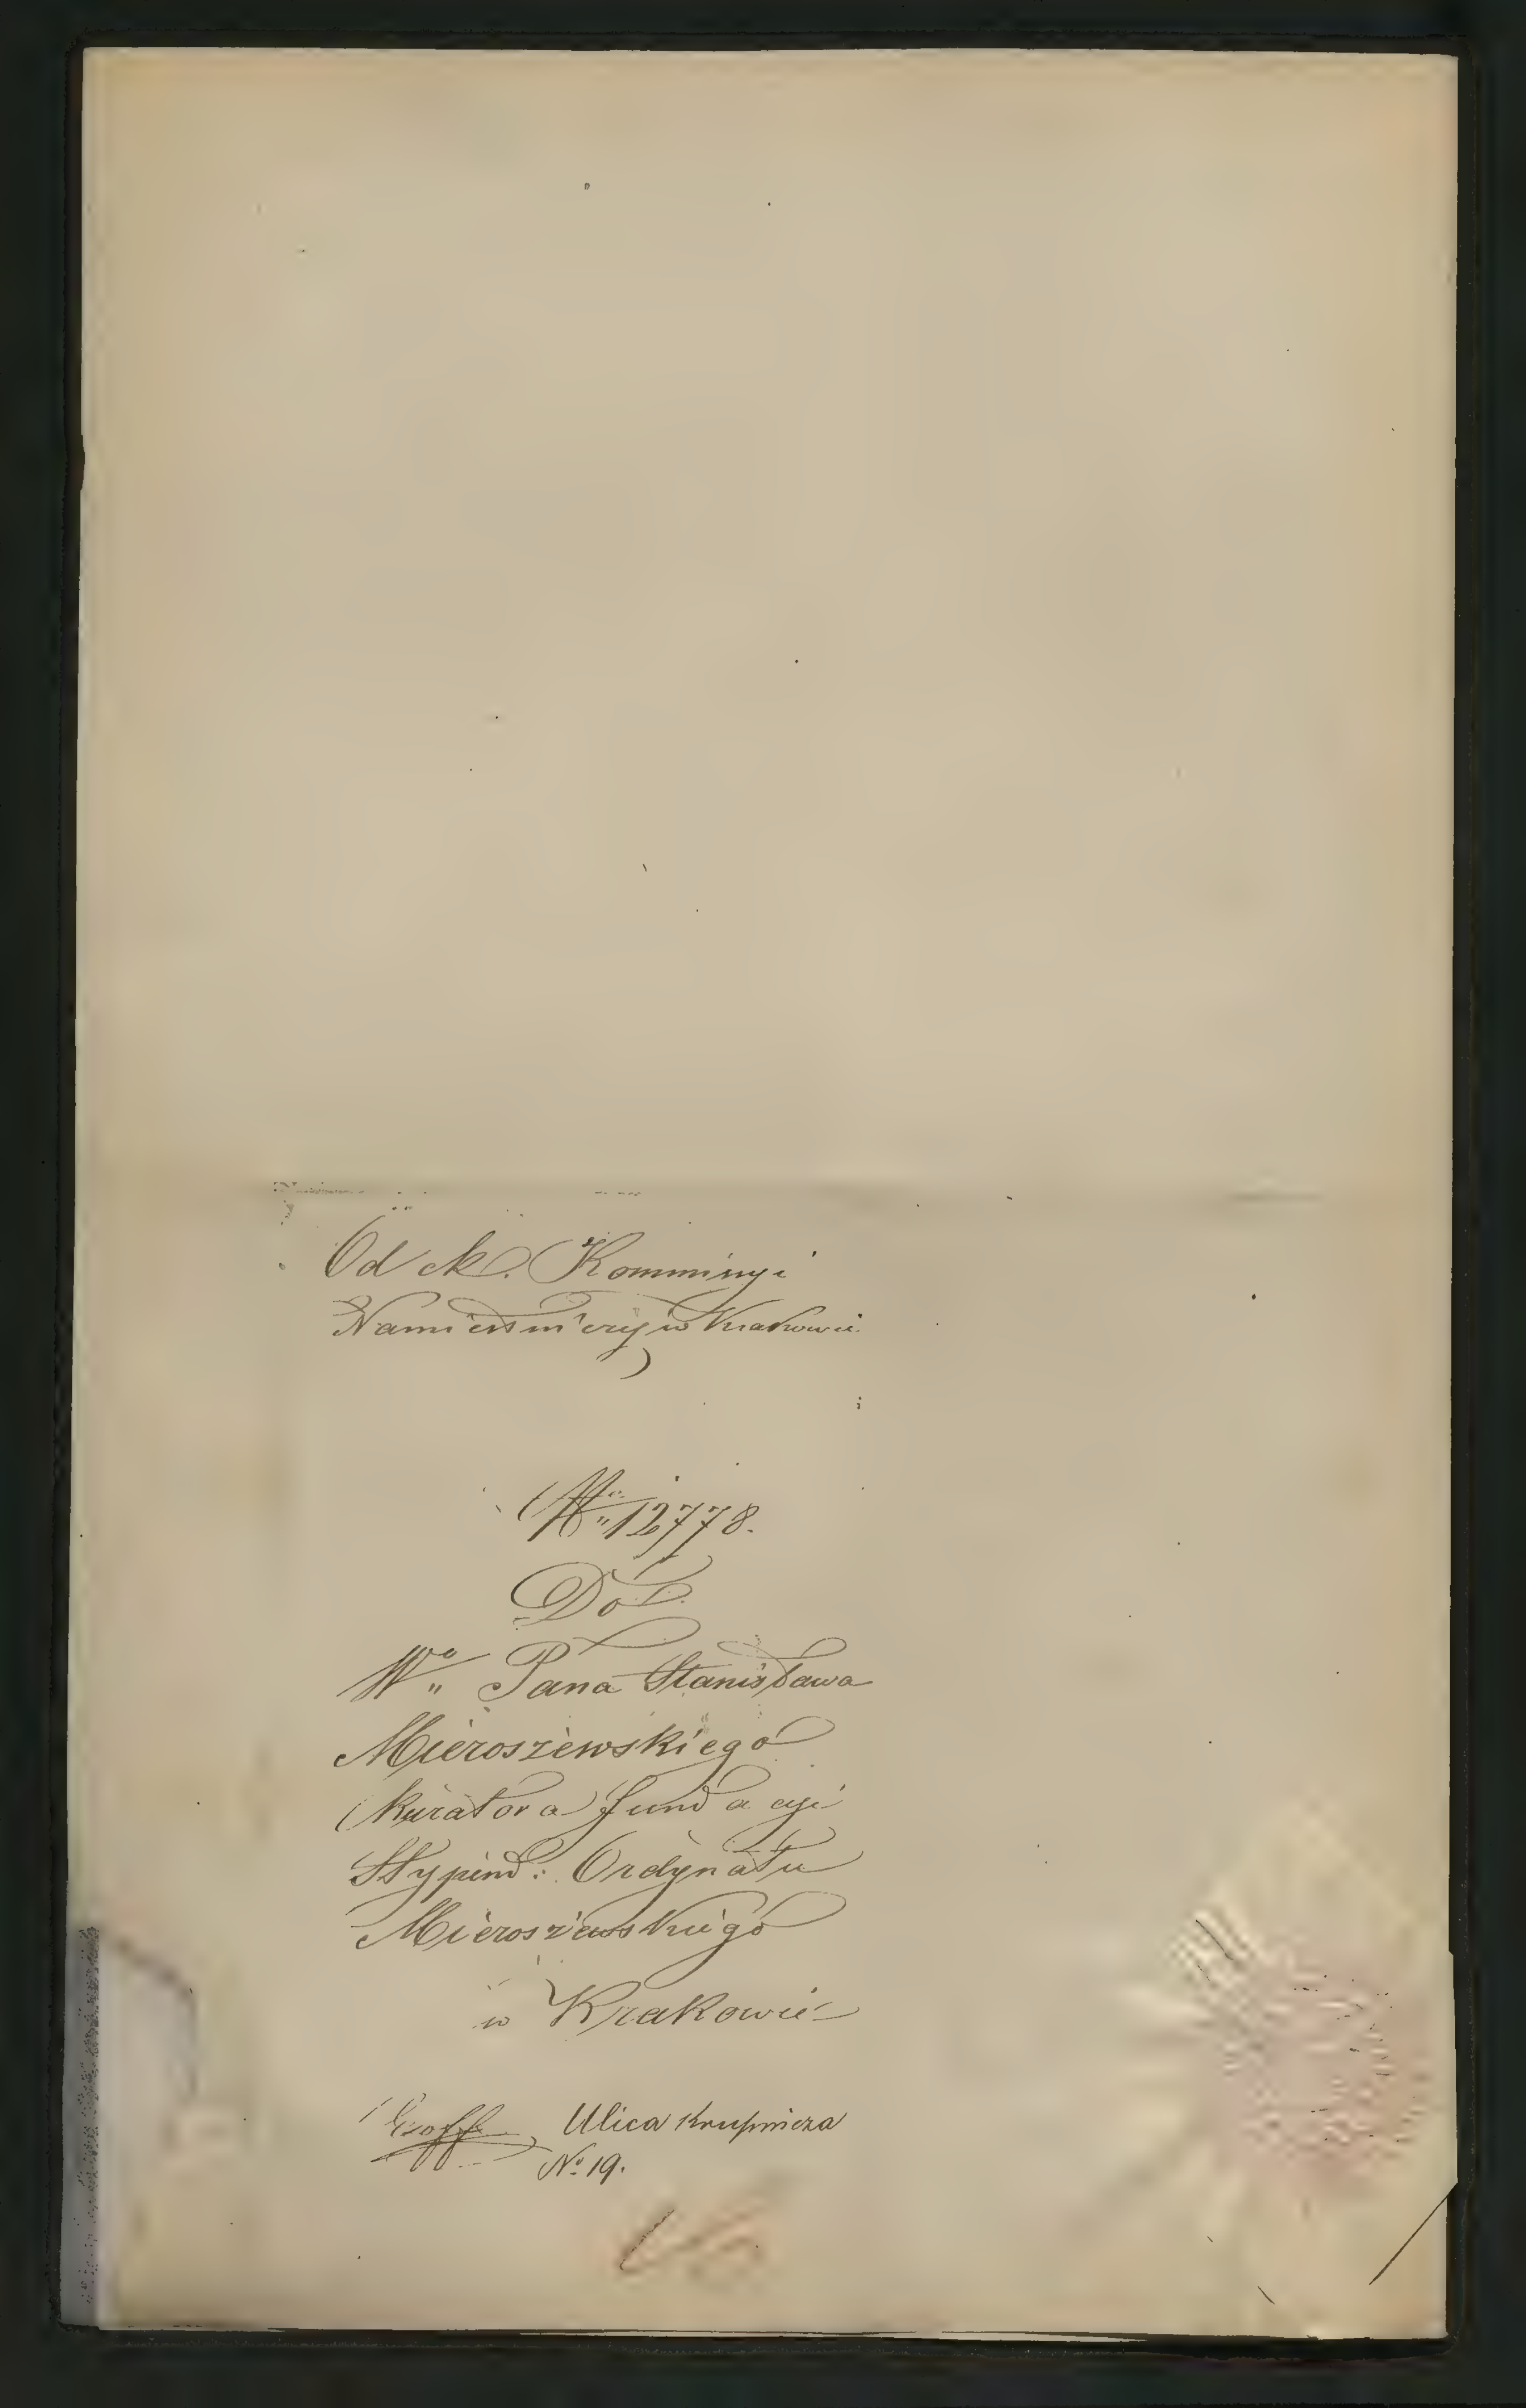 Od ck. Kommisyi
Namiestniczej w Krakowie.
No 12778.
Do
Wo Pana Stanisława
Mieroszewskiego
Kuratora fundacyi
Stypend: Ordynatu
Mieroszewskiego
w Krakowie
Ulica Krupnicza
No 19.